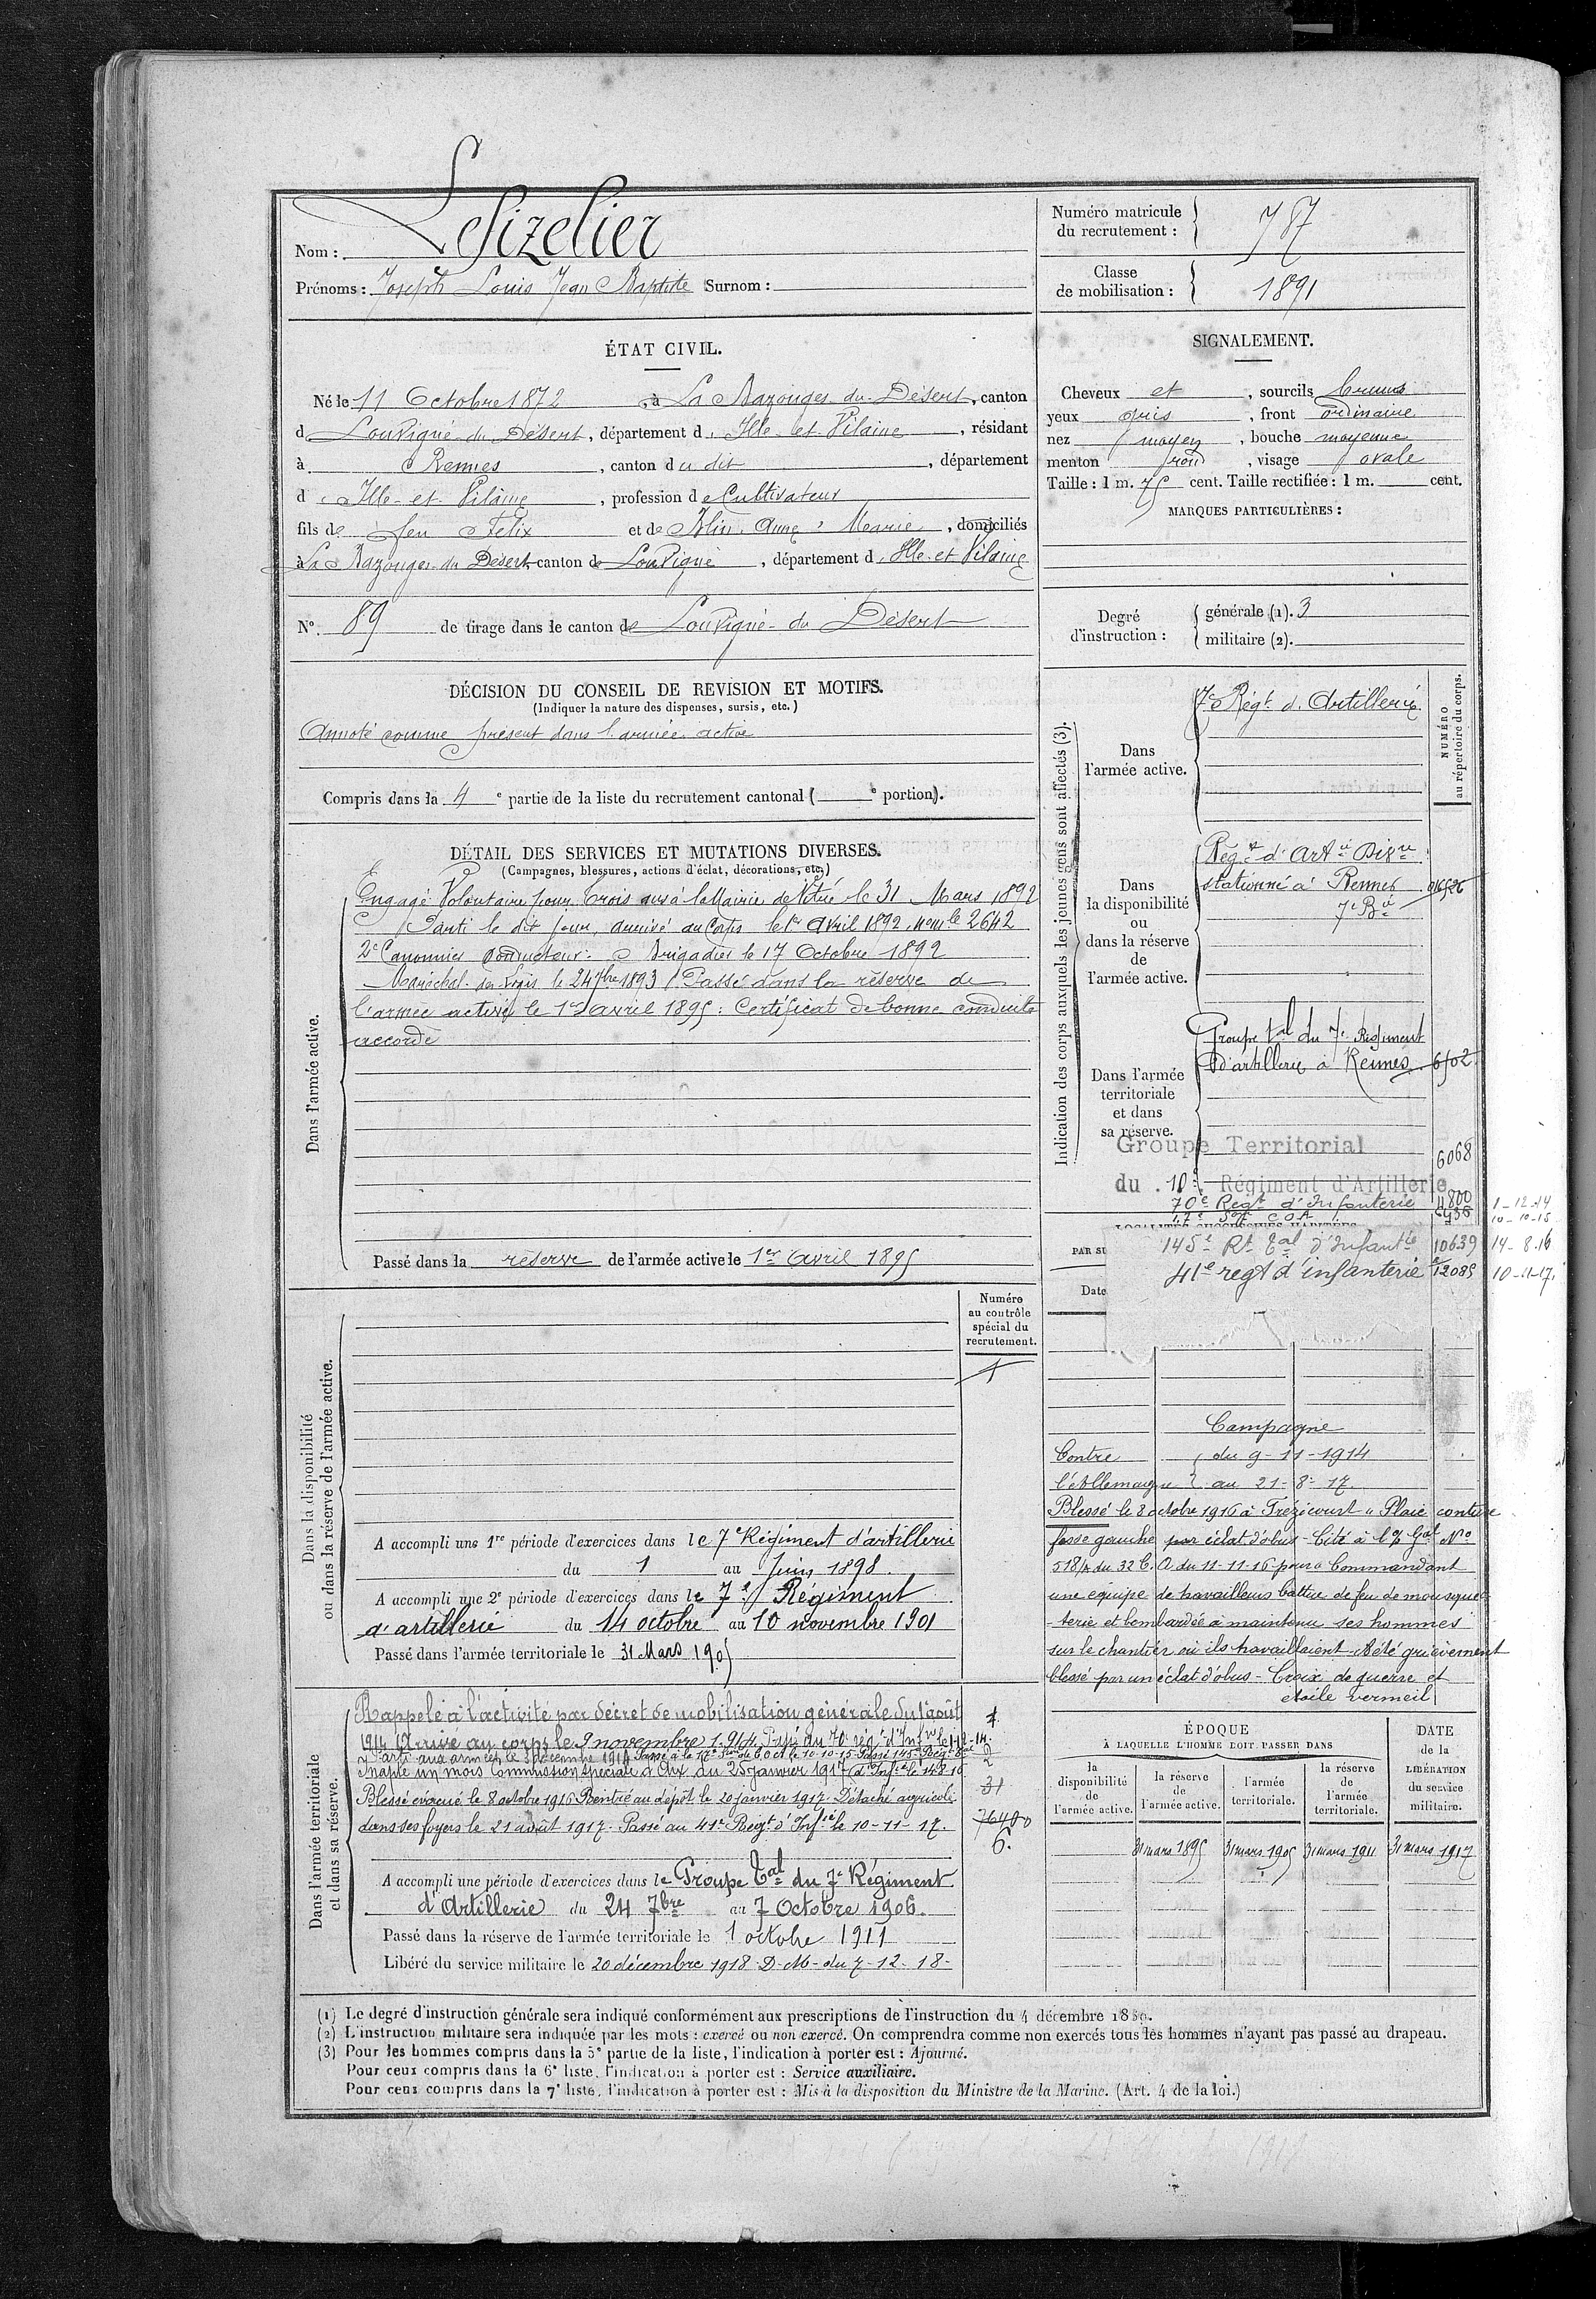 Nom : Lesizelier
Prénoms : Joseph Louis Jean Baptiste Surnom :
Numéro matricule du recrutement : 787
Classe de mobilisation : 1891
ÉTAT CIVIL.
Né le 11 Octobre 1872, à La Bazouges du Désert, canton
d Louvigné du Désert, département d Ille et Vilaine, résidant
à Rennes, canton du dit, département
d Ille-et-Vilaine, profession de Cultivateur
fils de feu Félix et de Blin Anne Marie, domiciliés
à La Bazouges du Désert, canton de Louvigné, département d Ille et Vilaine
N° 89 de tirage dans le canton de Louvigné du Désert
SIGNALEMENT.
Cheveux et, sourcils bruns
yeux gris, front ordinaire
nez moyen, bouche moyenne
menton rond, visage ovale
Taille : 1 m. 75 cent. Taille rectifiée : 1 m. cent.
MARQUES PARTICULIÈRES :
Degré d'instruction :
générale (1). 3
militaire (2).
DÉCISION DU CONSEIL DE REVISION ET MOTIFS.
(Indiquer la nature des dispenses, sursis, etc.)
Annoté comme présent dans l'armée active
Compris dans la 4e partie de la liste du recrutement cantonal ( e portion).
DÉTAIL DES SERVICES ET MUTATIONS DIVERSES.
(Campagnes, blessures, actions d'éclat, décorations, etc.)
Dans l'armée active.
Engagé Volontaire pour trois ans à la Mairie de Vitré le 31 Mars 1892
Parti le dit jour, arrivé au Corps le 1er Avril 1892, 2642
2e Canonnier conducteur. Brigadier le 17 Octobre 1892
Maréchal des Logis le 24 7bre 1893 Passé dans la réserve de
l'armée active le 1er avril 1895 : Certificat de bonne conduite
accordé
Passé dans la réserve de l'armée active le 1er Avril 1895
Indication des corps auxquels les jeunes gens sont affectés (3).
NUMÉRO au répertoire du corps.
Dans l'armée active.
7e Régt d'Artillerie
Dans la disponibilité ou dans la réserve de l'armée active.
Regt d'Artie Divre
stationné à Rennes
7e Bie
Dans l'armée territoriale et dans sa réserve.
Groupe tal du 7e Régiment
d'artillerie à Rennes 6502
Groupe Territorial 6068
du 10e Régiment d'Artillerie
70e Regt d'Infanterie 11800 1-12-14
COA 10-10-15
145e Rt tal d'Infantie 10639 14-8-16
41e regt d'infanterie 12085 10-11-17.
PAR SU
Date
Dans la disponibilité ou dans la réserve de l'armée active.
Numéro au contrôle spécial du recrutement.
A accompli une 1re période d'exercices dans le 7e Régiment d'artillerie
du 1 au Juin 1898.
A accompli une 2e période d'exercices dans le 7e Régiment
d'artillerie du 14 octobre au 10 novembre 1901
Passé dans l'armée territoriale le 31 Mars 1905
Campagne
Contre l'Allemagne { du 9-11-1914
au 21-8-17.
Blessé le 8 octobre 1916 à Frézicourt "Plaie contuse
fesse gauche par éclat d'obus - Cité à l'O/ Gal No
518/A du 32 C. A du 11-11-16 pour : Commandant
une équipe de travailleurs battue de feu de mousque-
-terie et bombardée a maintenu ses hommes
sur le chantier où ils travaillaient. A été grièvement
blessé par un éclat d'obus - Croix de guerre et
étoile vermeil
Dans l'armée territoriale et dans sa réserve.
Rappelé à l'activité par décret de mobilisation générale du 1 août
1914 Arrivé au corps le 9 novembre 1914 Passé au 70 régt d'Infie le 1-12-14.
Parti aux armées le décembre 1914 Passé à la 17e Son de C.O.A le 10-10-15 Passé 145e Regt tal
Inapte un mois Commission spéciale d'Aix du 25 janvier 1917 d'Infie le 14-8-16
Blessé évacué le 8 octobre 1916 Rentré au dépôt le 20 janvier 1917. Détaché agricole
dans ses foyers le 21 août 1917. Passé au 41e Regt d'Infie le 10-11-17.
A accompli une période d'exercices dans le Groupe tal du 7e Régiment
d'Artillerie du 24 7bre au 7 Octobre 1906.
Passé dans la réserve de l'armée territoriale le 1 octobre 1911
Libéré du service militaire le 20 décembre 1918 D.M. du 7-12-18-
ÉPOQUE
À LAQUELLE L'HOMME DOIT PASSER DANS
la disponibilité de l'armée active.
la réserve de l'armée active.
l'armée territoriale.
la réserve de l'armée territoriale.
DATE de la LIBÉRATION du service militaire.
31 mars 1895 31 mars 1905 31 mars 1911 31 mars 1917
(1) Le degré d'instruction générale sera indiqué conformément aux prescriptions de l'instruction du 4 décembre 1889.
(2) L'instruction militaire sera indiquée par les mots : exercé ou non exercé. On comprendra comme non exercés tous les hommes n'ayant pas passé au drapeau.
(3) Pour les hommes compris dans la 5e partie de la liste, l'indication à porter est : Ajourné.
Pour ceux compris dans la 6e liste, l'indication à porter est : Service auxiliaire.
Pour ceux compris dans la 7e liste, l'indication à porter est : Mis à la disposition du Ministre de la Marine. (Art. 4 de la loi.)